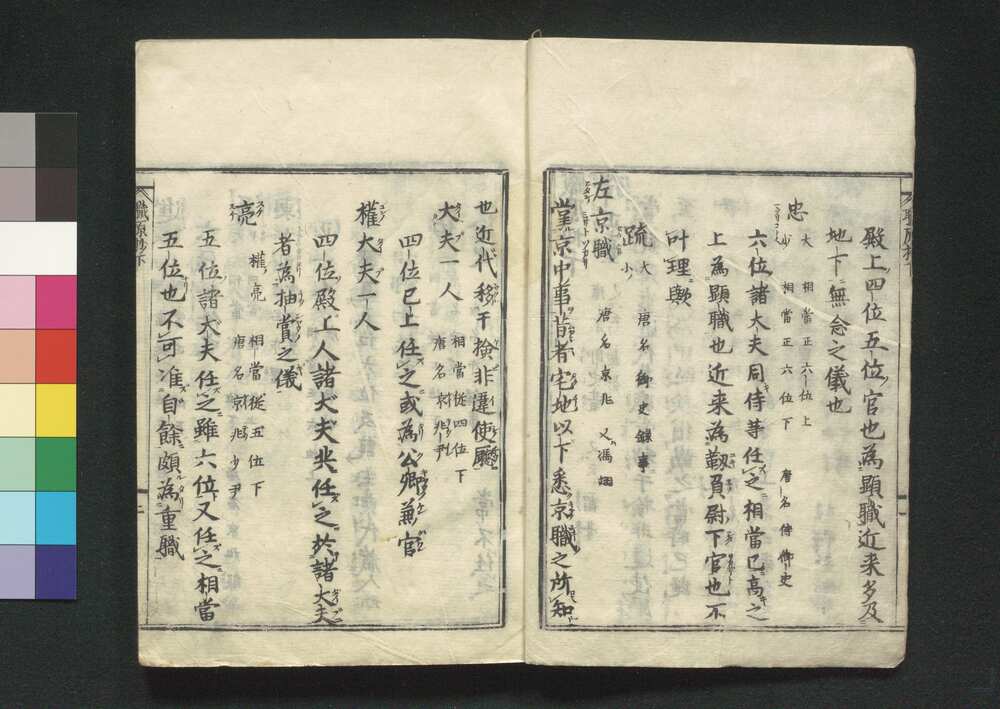 殿上四位五位官也為顕職近来多及
地下無念之儀也
忠 大 相當正六位上
少 相當正六位下 唐名侍御史
六位諸大夫同侍等任之相當已高之
上為顕職也近来為靱負尉下官也不
叶理歟
疏 大 唐名御史錄事
少
左京職 唐名京兆 又馮翊
掌京中事昔者宅地以下悉京職之所知
也近代移于検非違使廳
大夫一人 相當従四位下
唐名京兆尹
四位已上任之或為公卿兼官
權大夫一人
四位殿上人諸大夫共任之於諸大夫
者為抽賞之儀
亮 權亮 相當従五位下
唐名京兆少尹
五位諸大夫任之雖六位又任之相當
五位也不可准自餘頗為重職
職原抄下